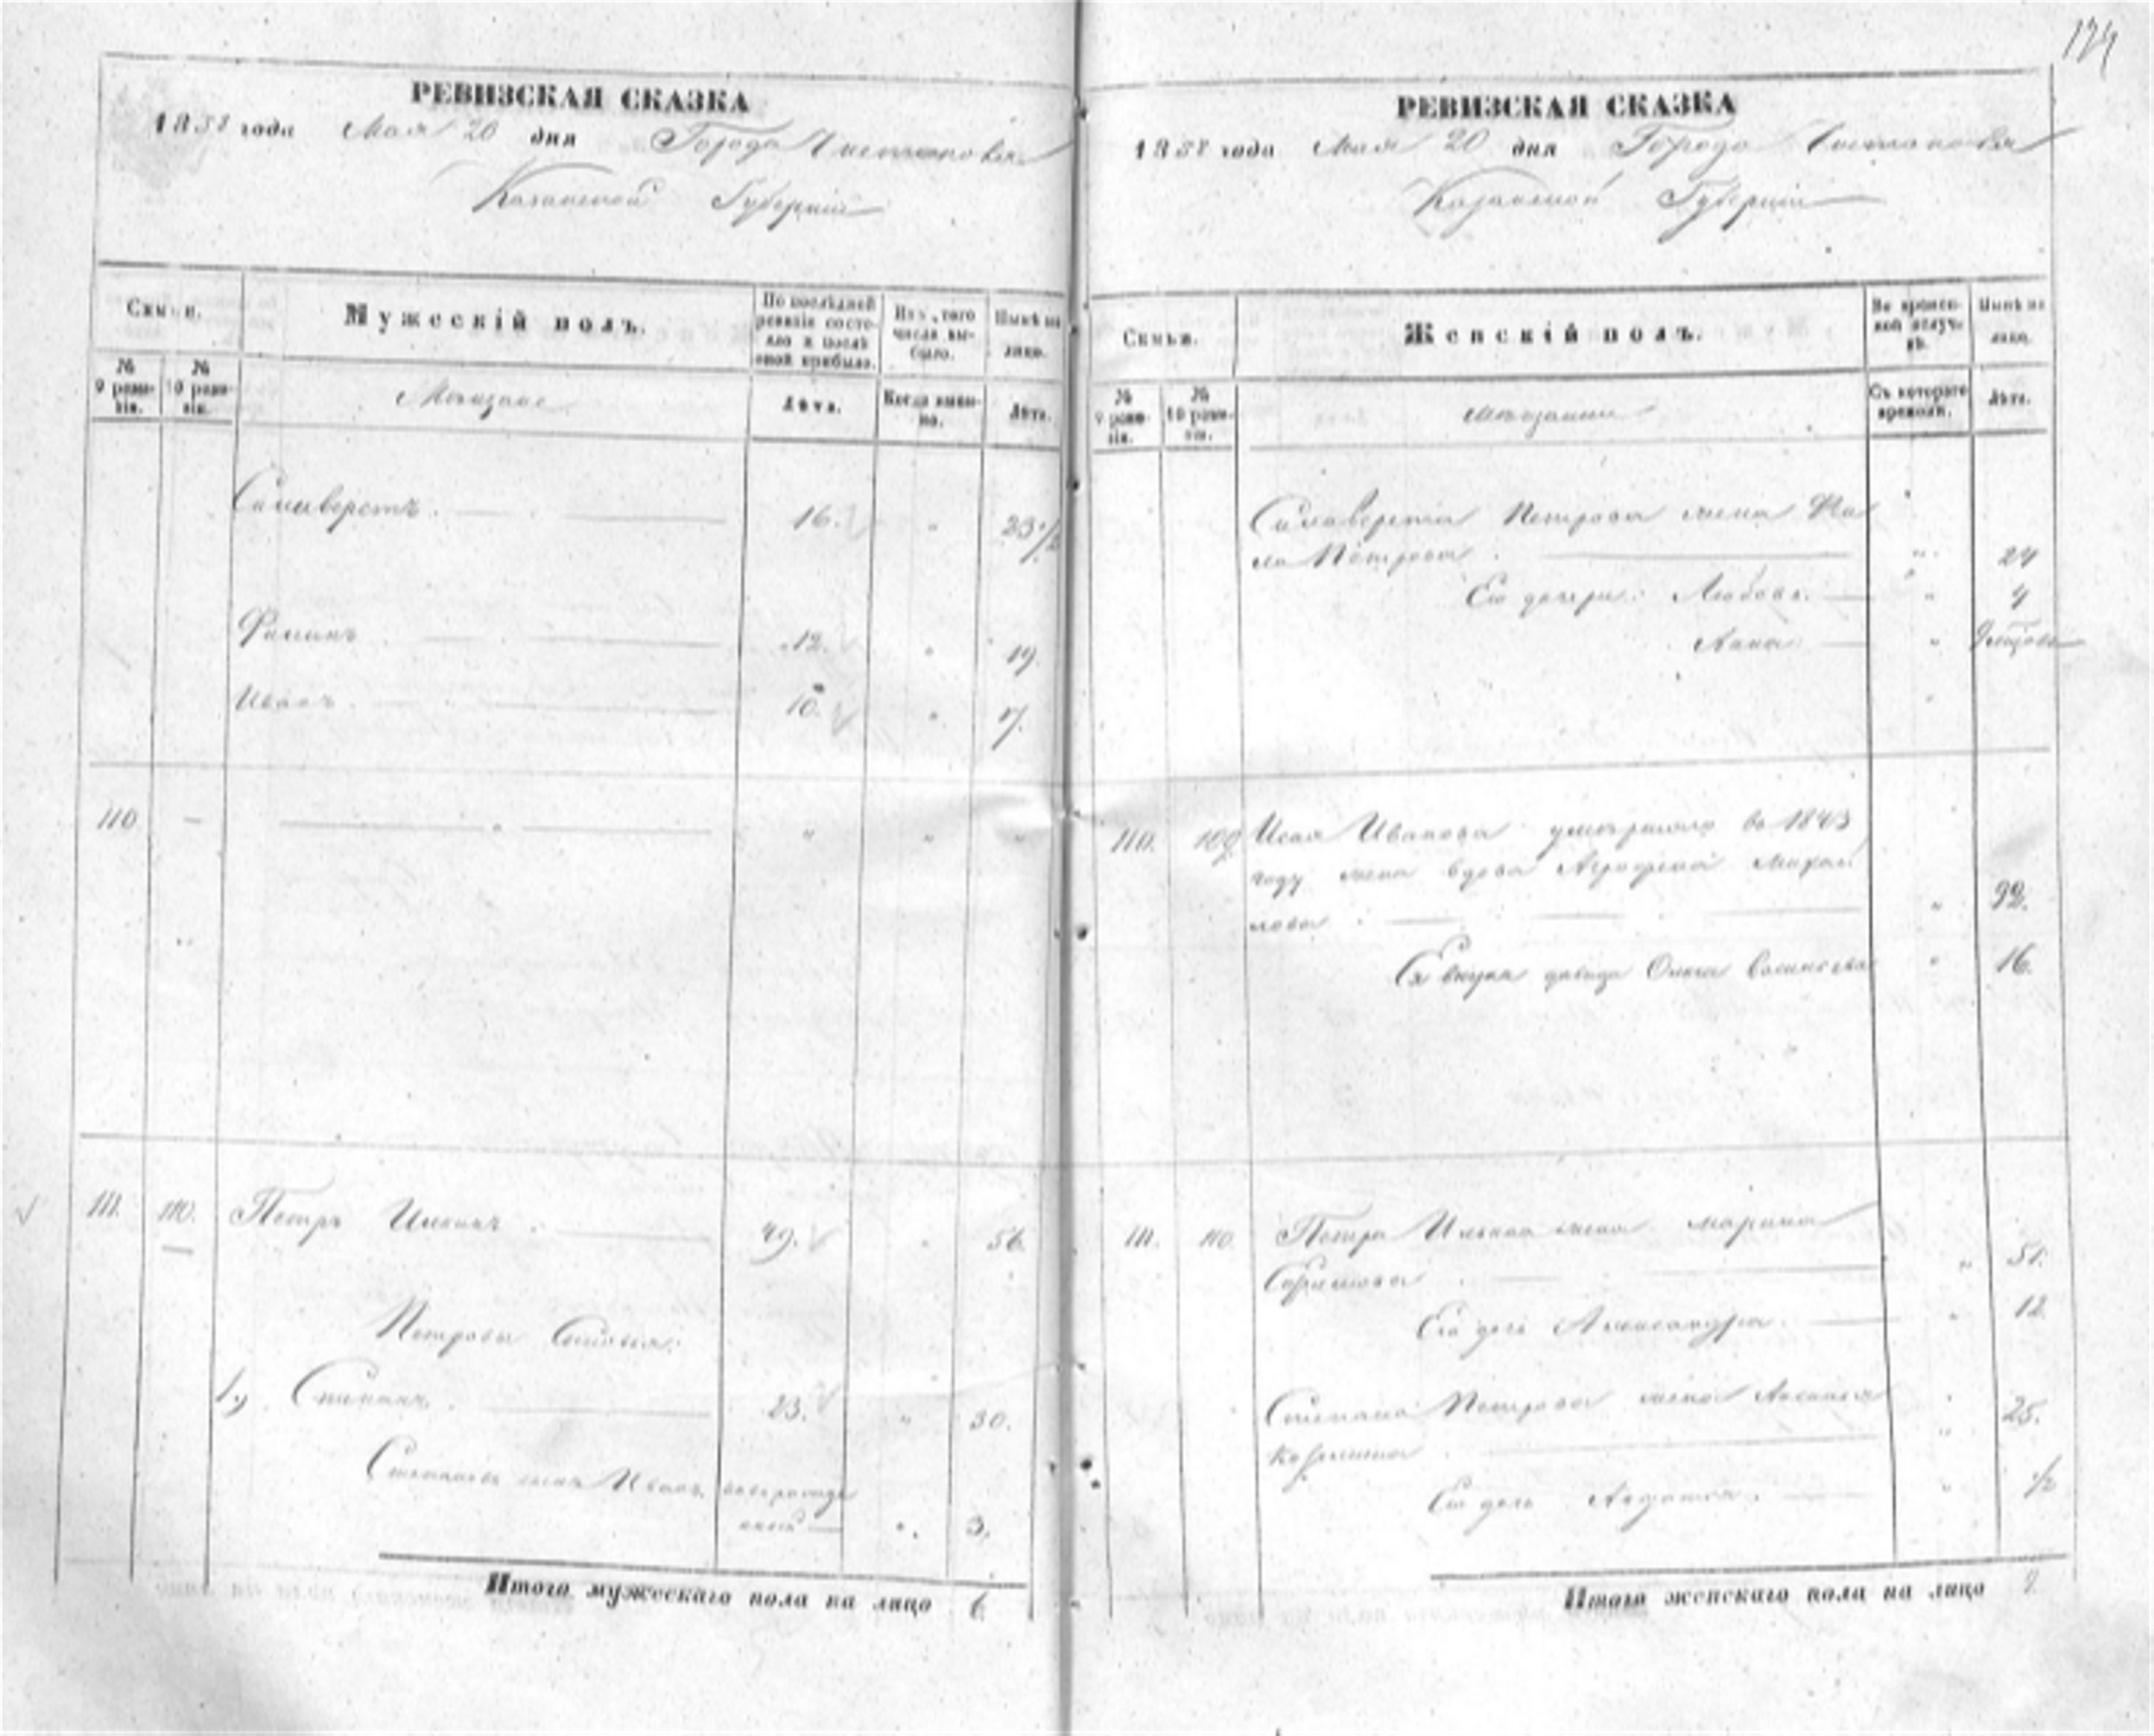 174
РЕВИЗСКАЯ СКАЗКА
1858 года Мая 20 дня Города Чистополя
Казанской Губерніи
Семьи.
Мужескій полъ.
По послѣдней ревизіи состояло и послѣ оной прибыло.
Изъ того числа выбыло.
Нынѣ на лицо.
№ 9 ревизіи.
№ 10 ревизіи.
Мѣщане
Лѣта.
Когда именно.
Лѣта.
Силиверстъ 16. " 23 1/2
Филипъ 12. " 19.
Иванъ 10. " 17.
110 — " " " "
111. 110. Петръ Ильинъ 49. " 56.
Петровы Сыновья:
1й Степанъ 23. " 30.
Степановъ сынъ Иванъ
" 3.
Итого мужескаго пола на лицо 6
РЕВИЗСКАЯ СКАЗКА
1858 года Мая 20 дня Города Чистополя
Казанской Губерніи
Семьи.
Женскій полъ.
Во временной отлучкѣ.
Нынѣ на лицо.
№ 9 ревизіи.
№ 10 ревизіи.
Мѣщанки
Съ котораго времени.
Лѣта.
Силаверста Петрова жена
Петрова " 24
Его дочери: Любовь " 4
Анна "
110. 109 Исая Иванова умершаго въ 1843
году жена вдова Агрофена Михай
лова " 92.
Ея внука дѣвица Ольга " 16.
111. 110 Петра Ильина жена Марина
" 51.
Его дочь Александра " 12.
Степана Петрова жена
" 25.
Его дочь " 1/2
Итого женскаго пола на лицо 9